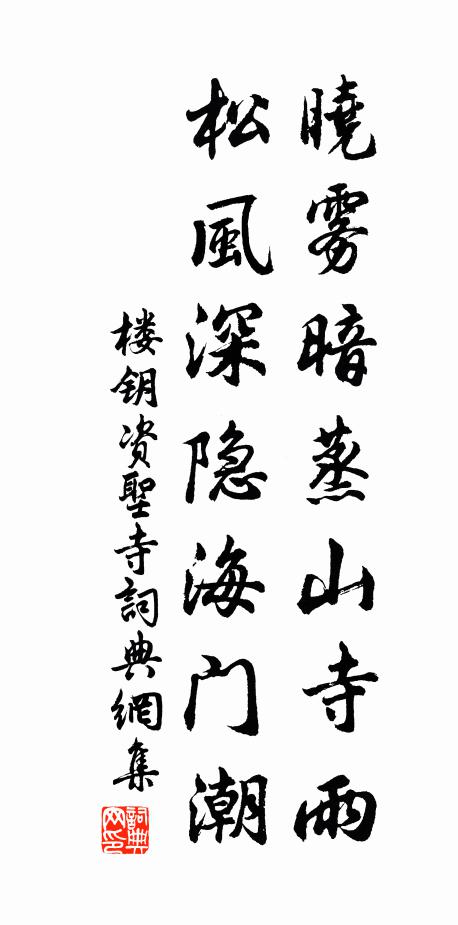 曉雾暗蒸山寺雨
松風深隐海门潮
楼钥资聖寺詞典網集
詞典网印